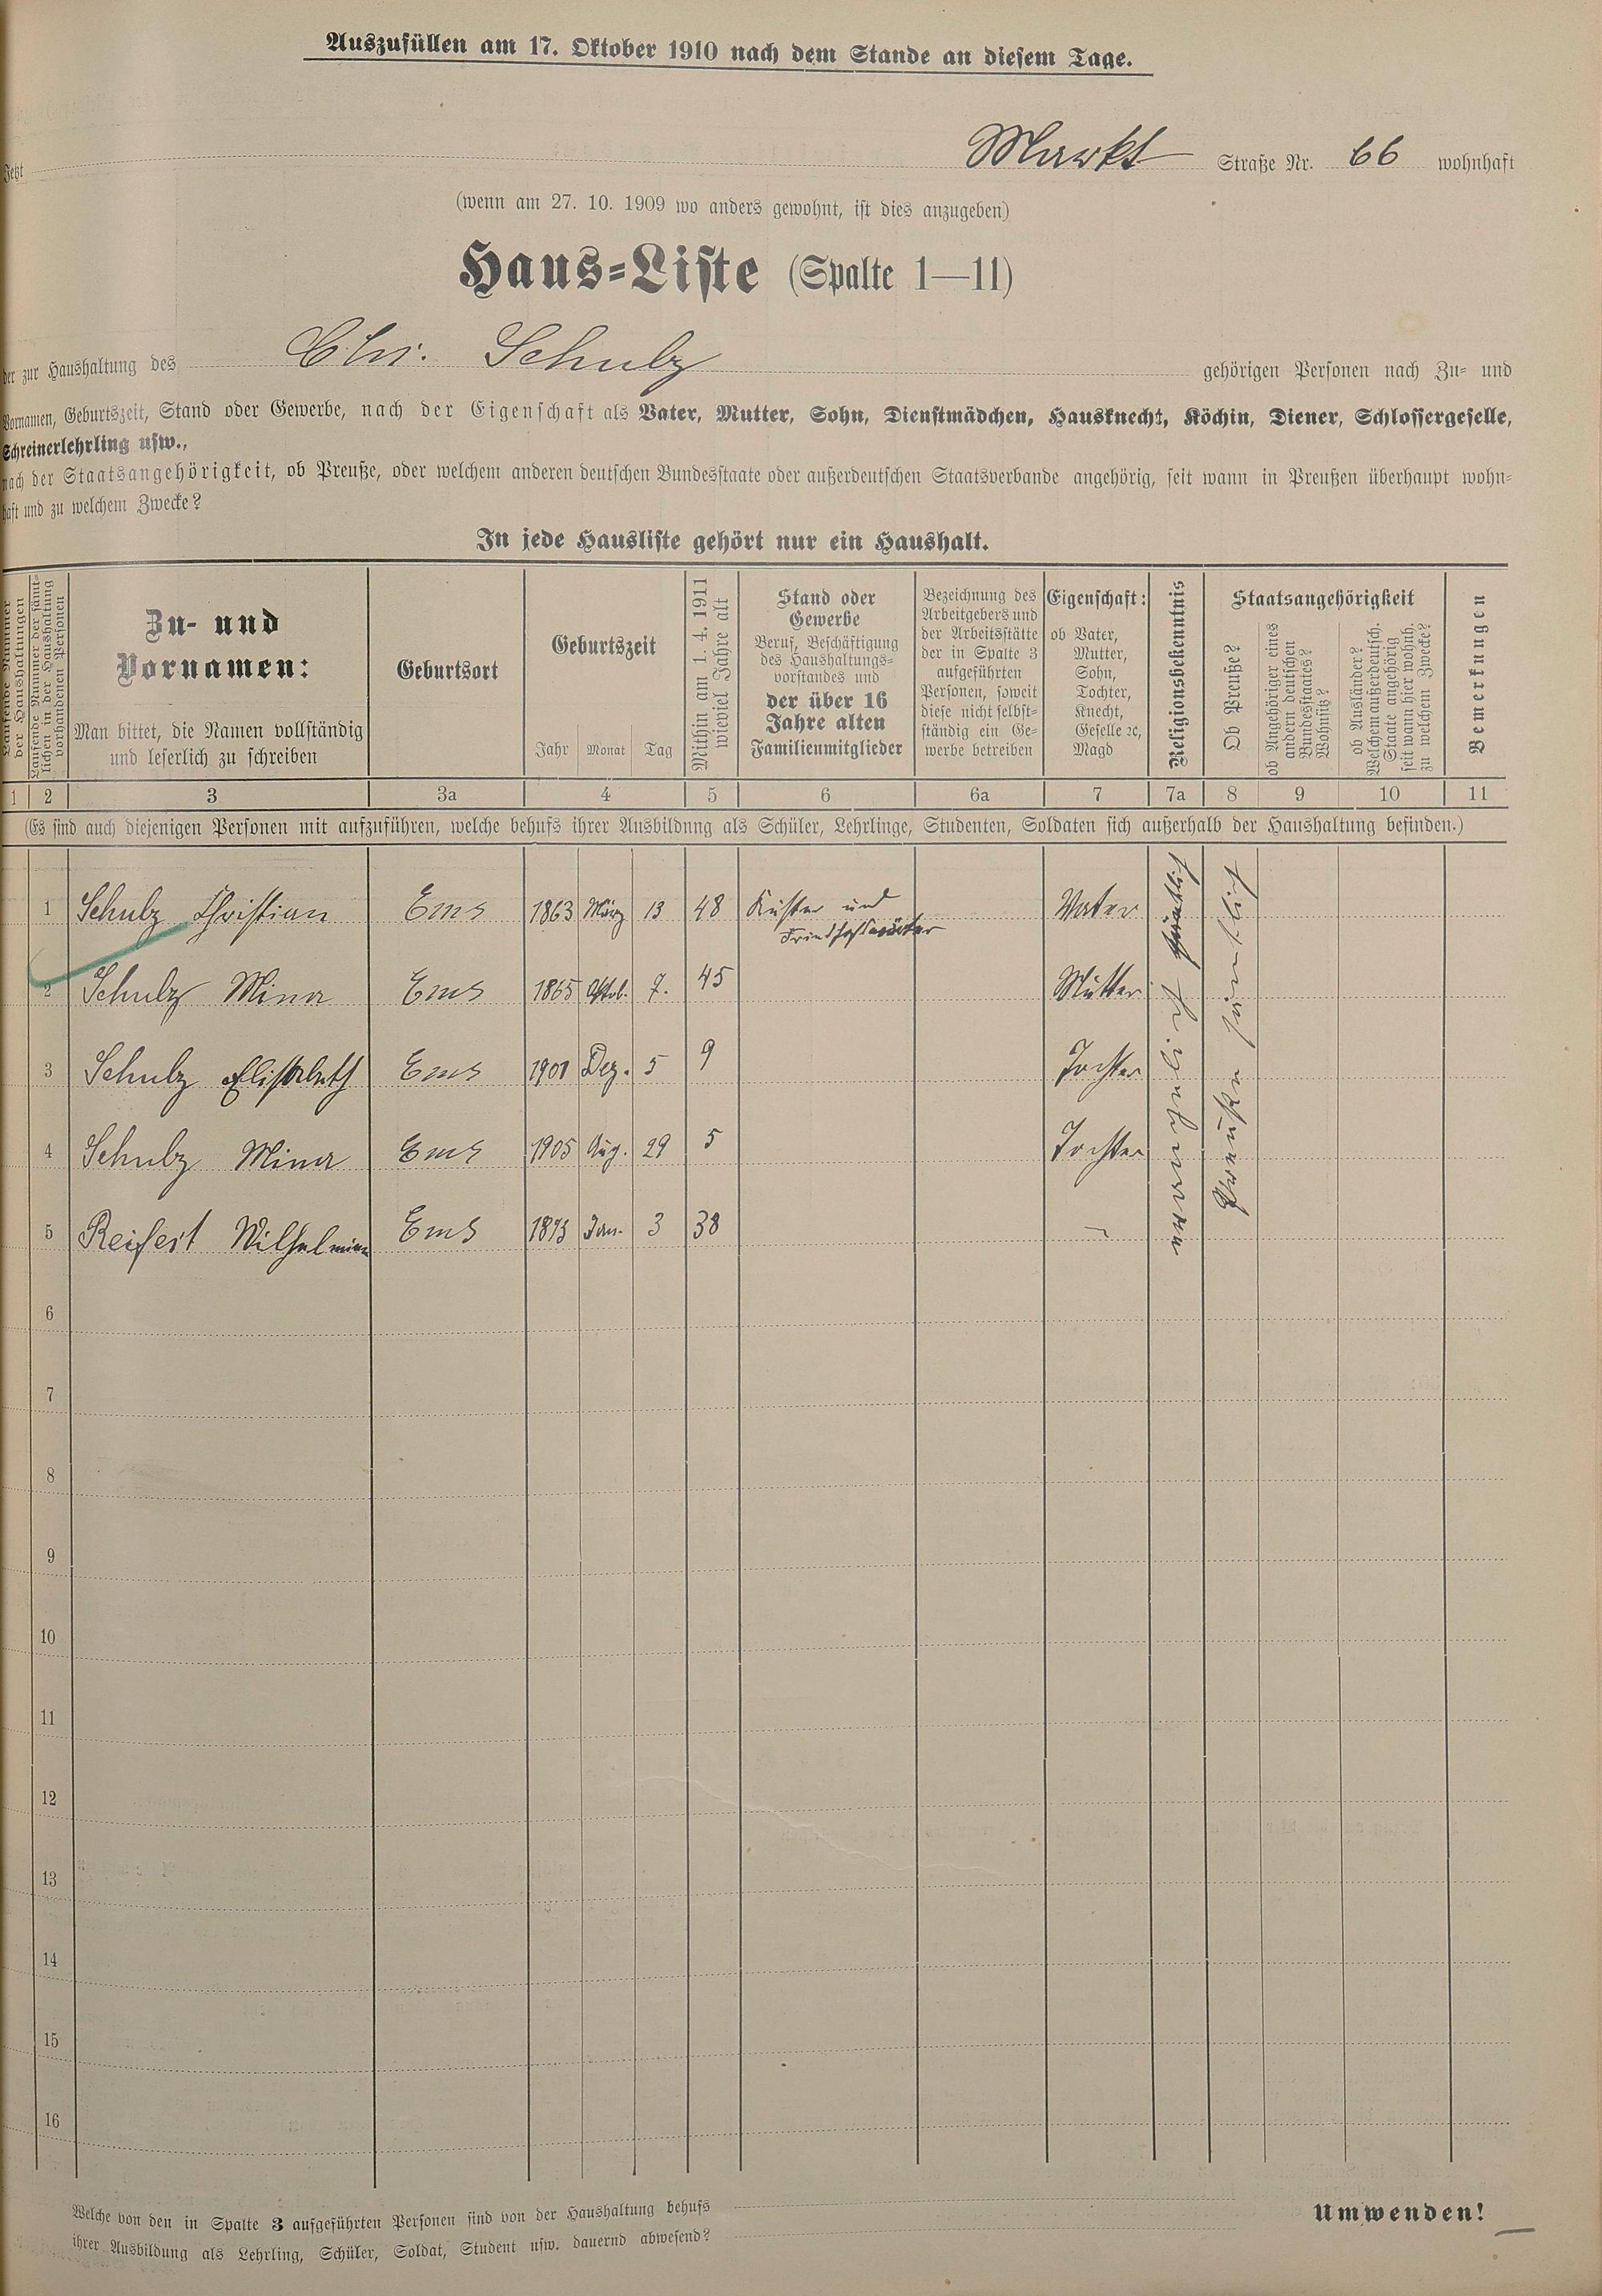 Auszufüllen am 17. Oktober 1910 nach dem Stande an diesem Tage.
Jetzt Markt Straße Nr. 66 wohnhaft
(wenn am 27. 10. 1909 wo anders gewohnt, ist dies anzugeben)
Haus-Liste (Spalte 1—11)
der zur Haushaltung des Chr. Schulz gehörigen Personen nach Zu- und
Vornamen, Geburtszeit, Stand oder Gewerbe, nach der Eigenschaft als Vater, Mutter, Sohn, Dienstmädchen, Hausknecht, Köchin, Diener, Schlossergeselle,
Schreinerlehrling usw.,
nach der Staatsangehörigkeit, ob Preuße, oder welchem anderen deutschen Bundesstaate oder außerdeutschen Staatsverbande angehörig, seit wann in Preußen überhaupt wohn-
haft und zu welchem Zwecke?
In jede Hausliste gehört nur ein Haushalt.
Laufende Nummer
der Haushaltungen
Laufende Nummer der sämt-
lichen in der Haushaltung
vorhandenen Personen
Zu- und
Vornamen:
Man bittet, die Namen vollständig
und leserlich zu schreiben
Geburtsort
Geburtszeit
Jahr Monat Tag
Mithin am 1. 4. 1911
wieviel Jahre alt
Stand oder
Gewerbe
Beruf, Beschäftigung
des Haushaltungs-
vorstandes und
der über 16
Jahre alten
Familienmitglieder
Bezeichnung des
Arbeitgebers und
der Arbeitsstätte
der in Spalte 3
aufgeführten
Personen, soweit
diese nicht selbst-
ständig ein Ge-
werbe betreiben
Eigenschaft:
ob Vater,
Mutter,
Sohn,
Tochter,
Knecht,
Geselle ꝛc,
Magd
Religionsbekenntnis
Staatsangehörigkeit
Ob Preuße?
ob Angehöriger eines
andern deutschen
Bundesstaates?
Wohnsitz?
ob Ausländer?
Welchem außerdeutsch.
Staate angehörig
seit wann hier wohnh.
zu welchem Zwecke?
Bemerkungen
1 2 3 3a 4 5 6 6a 7 7a 8 9 10 11
(Es sind auch diejenigen Personen mit aufzuführen, welche behufs ihrer Ausbildung als Schüler, Lehrlinge, Studenten, Soldaten sich außerhalb der Haushaltung befinden.)
1 Schulz Christian Ems 1863 März 13 48 Küster und Vater
Friedhofswärter
2 Schulz Mina Ems 1865 Oktob. 7. 45 Mutter
3 Schulz Elisabeth Ems 1901 Dez. 5 9 Tochter
4 Schulz Mina Ems 1905 Aug. 29 5 Tochter
5 Reifert Wilhelmine Ems 1873 Jan. 3 38 –
evangelisch sämtlich
Preußen sämtlich
6
7
8
9
10
11
12
13
14
15
16
Welche von den in Spalte 3 aufgeführten Personen sind von der Haushaltung behufs
ihrer Ausbildung als Lehrling, Schüler, Soldat, Student usw. dauernd abwesend?
Umwenden!